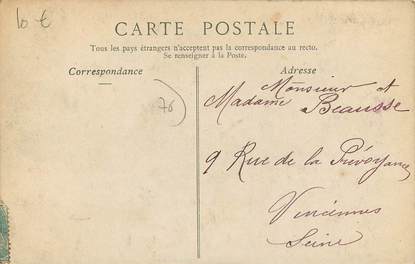 10 €
CARTE POSTALE
Tous les pays étrangers n'acceptent pas la correspondance au recto.
Se renseigner à la Poste.
Correspondance
76
Adresse
Monsieur et
Madame Beausse
9 Rue de la Prévoyance
Vincennes
Seine